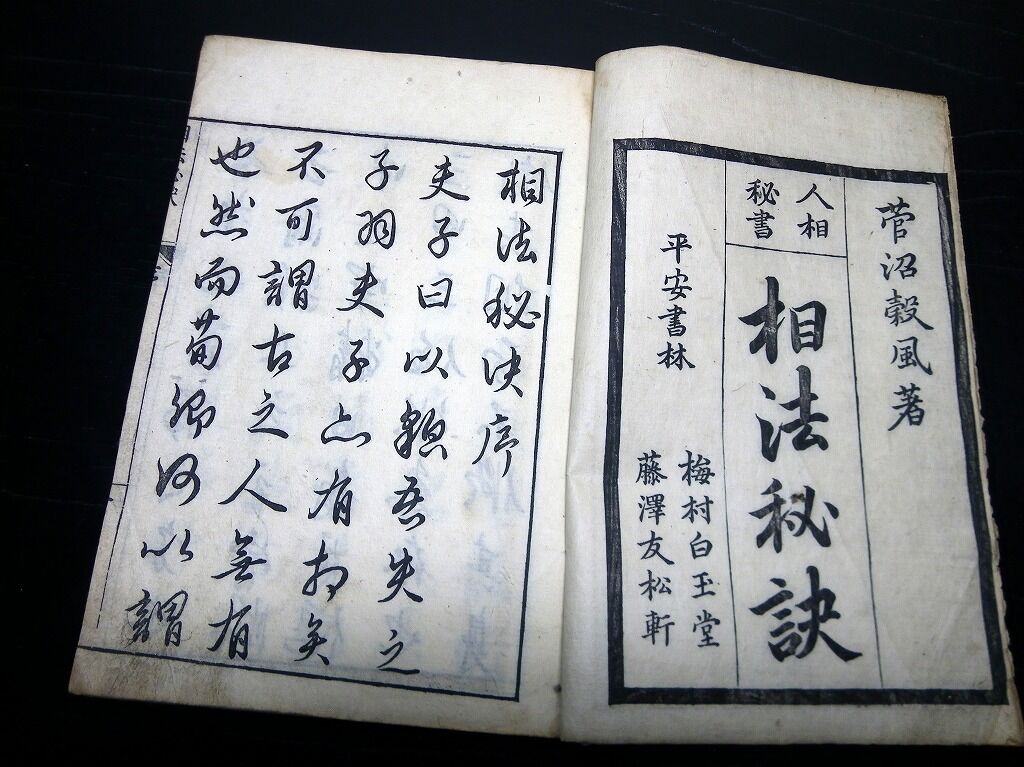 菅沼毅風著
人相
秘書
相法秘訣
平安書林
梅村白玉堂
藤澤友松軒
相法秘决序
夫子曰以貌吾失之
子羽夫子亦有相矣
不可謂古之人無有
也然而荀卿何以謂